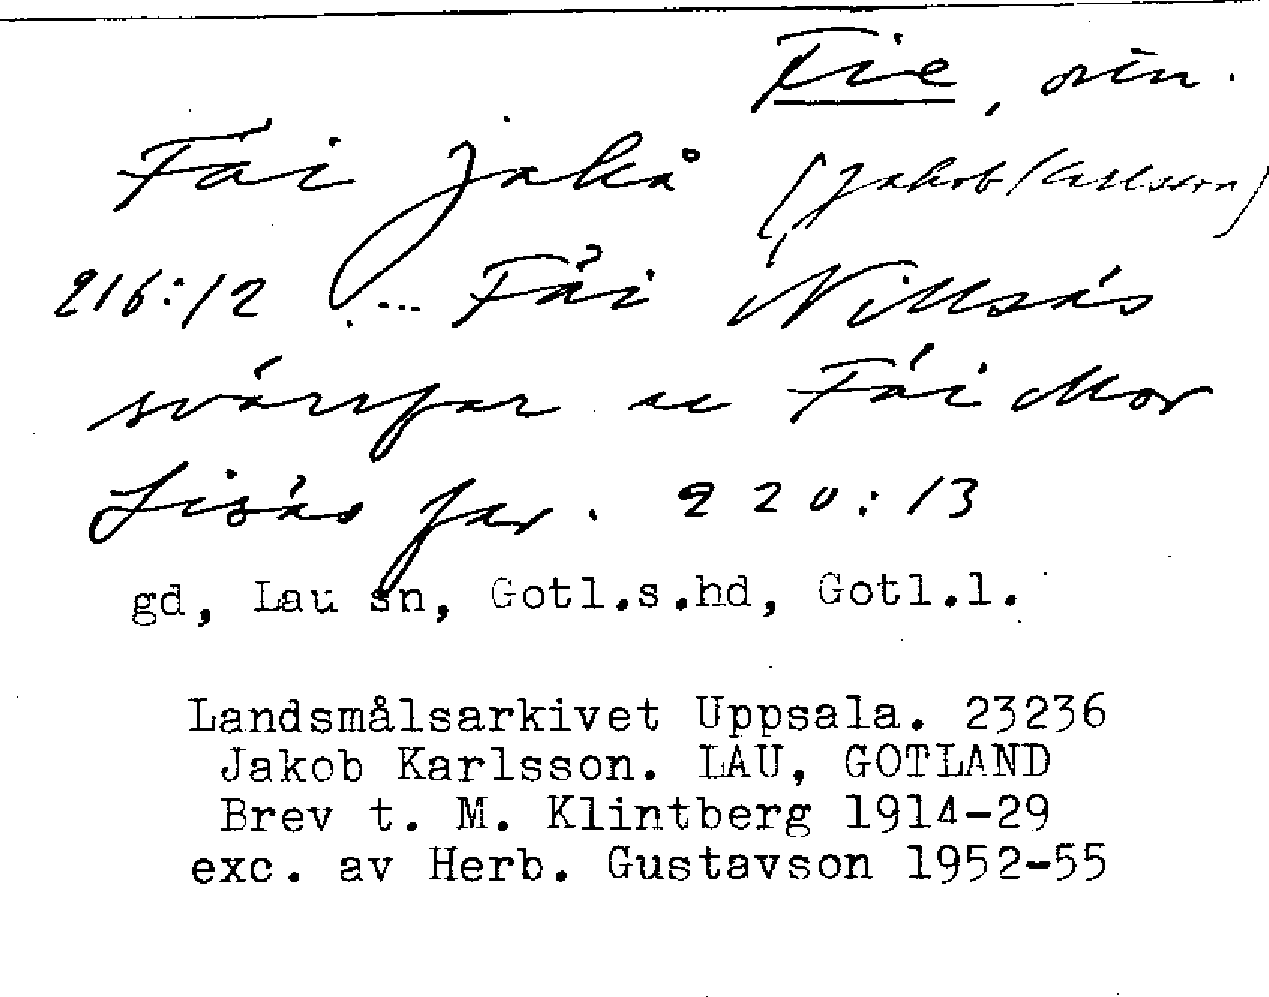 Fie, ötn.
Fäi jakå (Jakob Karlsson)
216:12 ... Fäi Nillsás
svärrfar u Fäi Mor
Lisás far. 220:13
gd, Lau sn, Gotl.s.hd, Gotl.l.
Landsmålsarkivet Uppsala. 23236
Jakob Karlsson. LAU, GOTLAND
Brev t. M. Klintberg 1914-29
exc. av Herb. Gustavson 1952-55